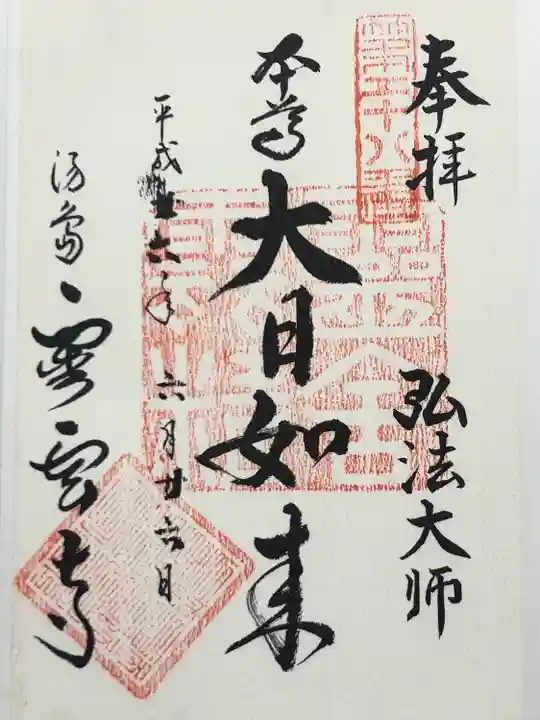 奉拝
弘法大師
本尊
大日如来
平成廿六年
六月廿六日
湯島
霊雲寺